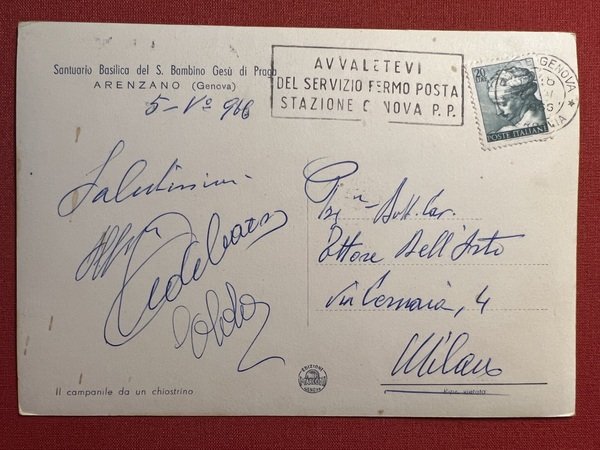 Santuario Basilica del S. Bambino Gesù di Praga
ARENZANO (Genova)
5-Vº 966
AVVALETEVI
DEL SERVIZIO FERMO POSTA
STAZIONE GENOVA P.P.
GENOVA
20
POSTE ITALIANE
Salutissimi
Dott. Cav.
Ettore Dell'Orto
Via Cernaia, 4
Milano
Il campilane da un chiostrino
EDIZIONI
GENOVA
Rip. vietata